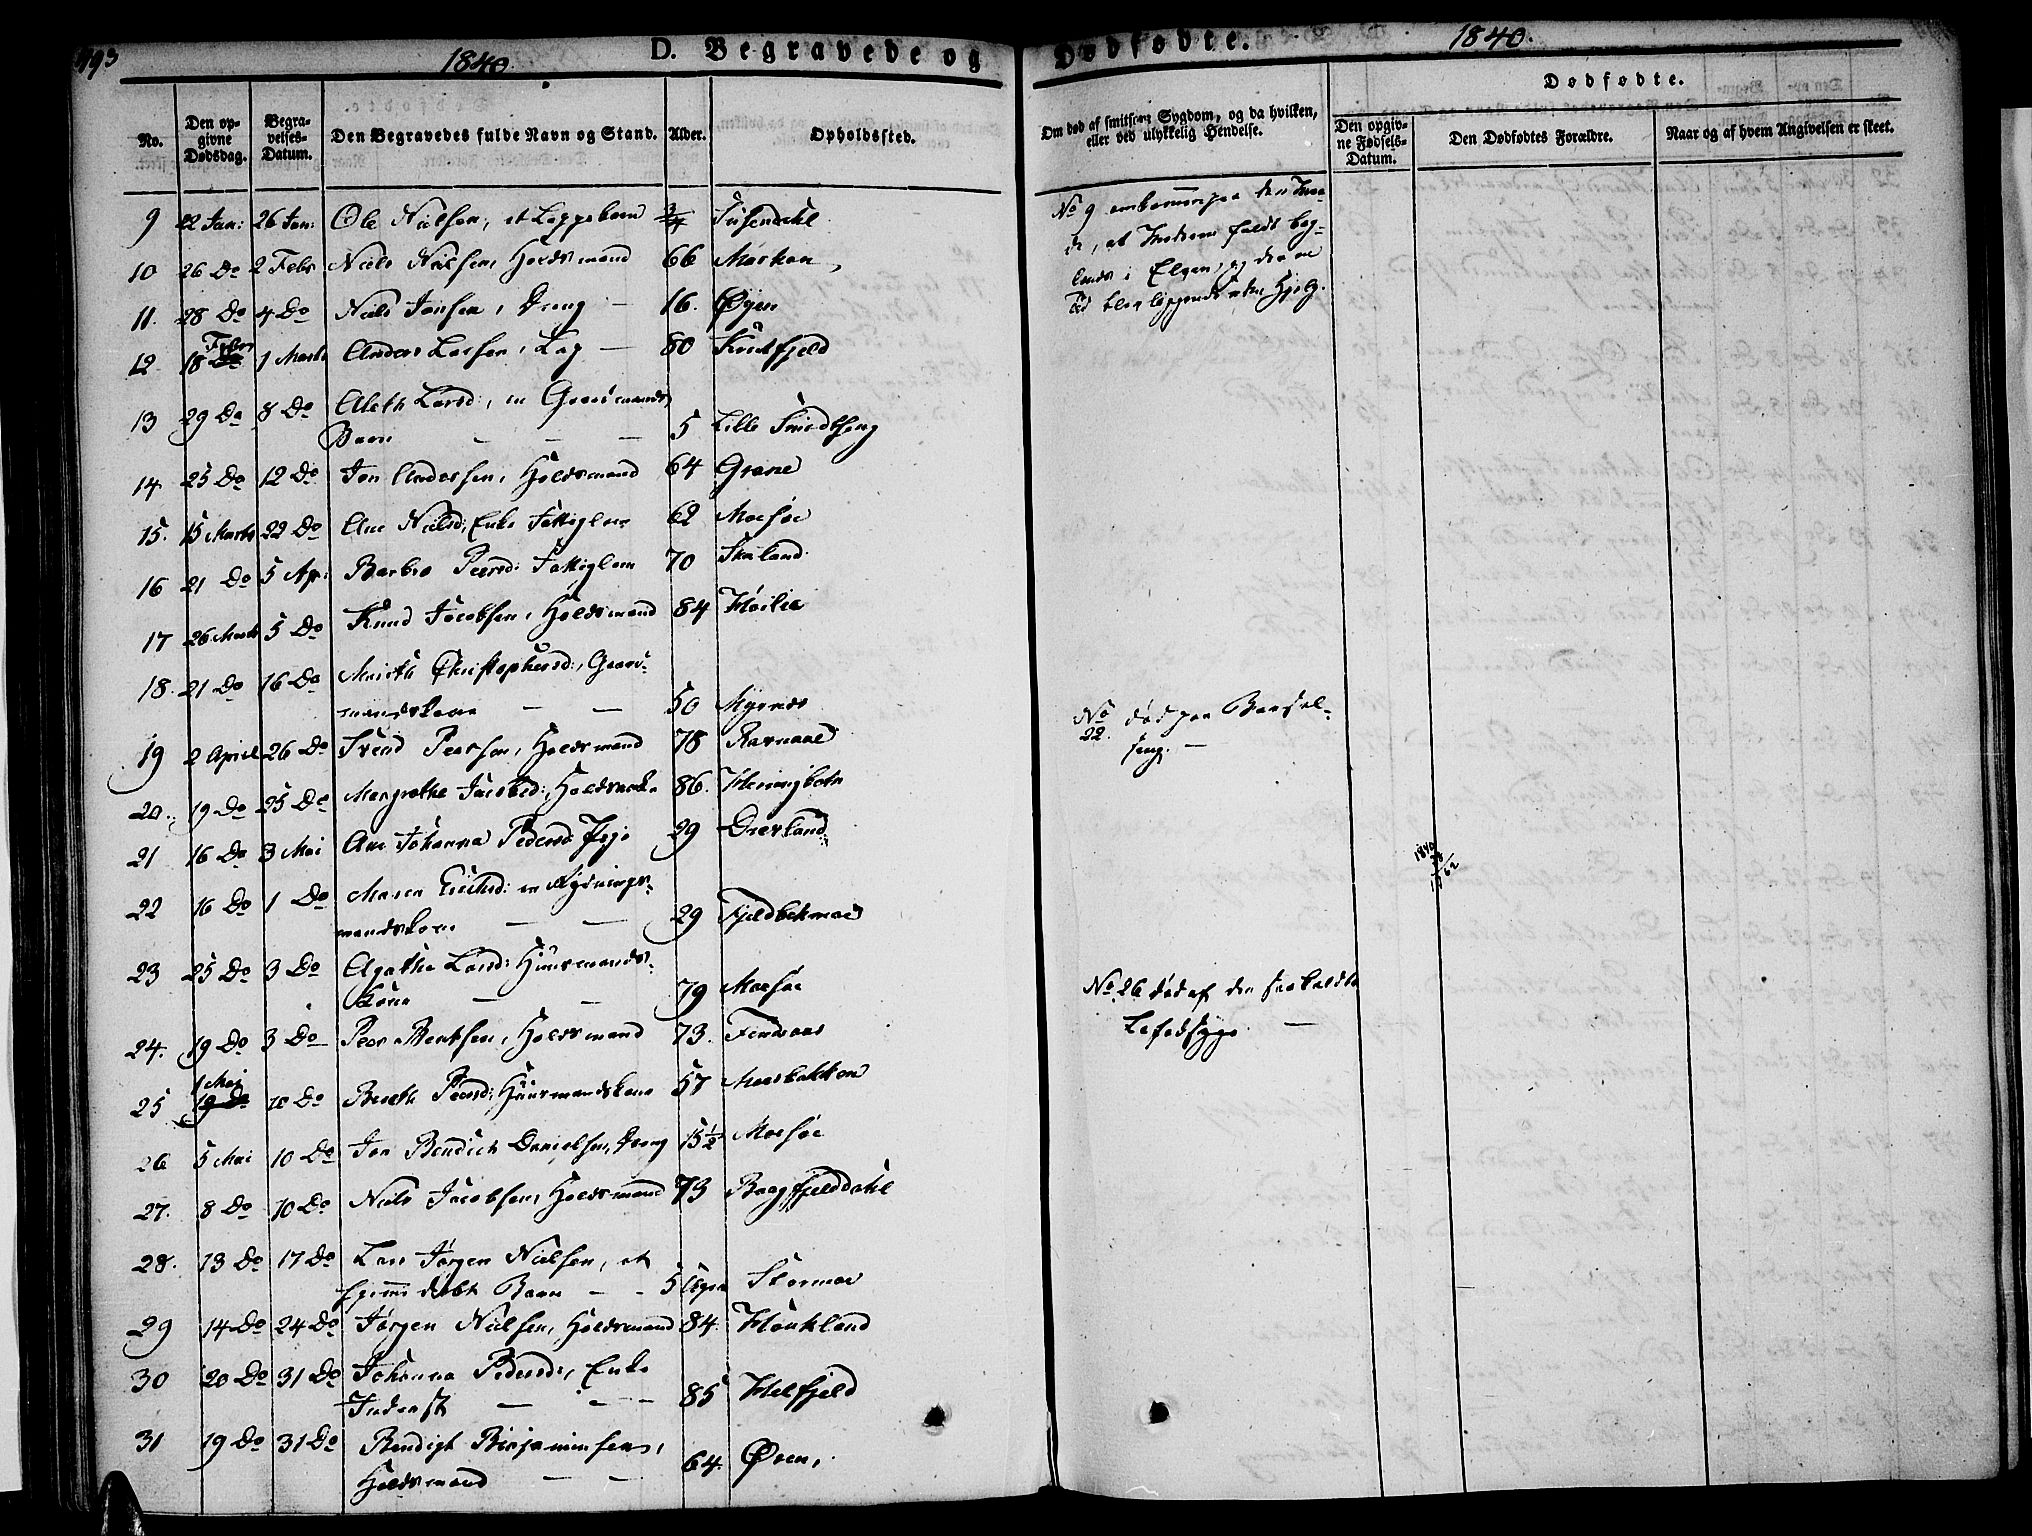 1840. D. Begravede og
No. Den opgivne Dødsdag. Begravelses-Datum. Den Begravedes fulde Navn og Stand. Alder. Opholdssted.
9 22 Jan: 26 Jan: Ole Nielsen, et Lappebarn 3/4 Susendahl
10 26 Do 2 Febr Niels Nielsen, Holdsmand 66
11. 28 Do 4 Do Niels Jonsen, Dreng — 16. Øyen
12. 18 Febr 1 Marts Anders Larsen, Læg — 80
13 29 Do 8 Do Aleth Larsd:, en Gaardmands
Barn — — — 5 Lille
14. 25 Do 12 Do Jon Andersen, Holdsmand 64 Grane
15. 15 Marts 22 Do Ane Nielsd: Enke Fattiglem 62 Mosøe
16 21 Do 5 Apr: Barbro Peersd: Fattiglem 70
17 26 Marts 5 Do Knud Jacobsen, Holdsmand 84 Høilie
18. 21 Do 16 Do Marith Christophersd:, Gaard-
mandskone — — 50 Myrnes
19 2 April 26 Do Svend Peersen, Holdsmand 78
20. 19 Do 25 Do Margrethe Jacobsd:, Holdsenke 86.
21 16 Do 3 Mai Ane Johanna Pedersd Pige 29
22 16 Do 1 Do Maren en Rydnings-
mandskone — — 29 Fjeldbekmoe
23 25 Do 3 Do Agathe Larsd: Huusmands-
kone — — 79 Mosøe
24. 19 Do 3 Do Peer Bentsen, Holdsmand 73.
25 1 Mai 10 Do Bereth Peersd: Huusmandskone 57 Moesbakken
26 5 Mai 10 Do Jon Bendich Danielsen, Dreng 15½ Mosøe
27. 8 Do 10 Do Niels Jacobsen, Holdsmand 73 Baagfjelddahl
28. 13 Do 17 Do Lars Jørgen Nielsen, et
hjemmedøbt Barn — - 5 Uger Stormoe
29 14 Do 24 Do Jørgen Nielsen, Holdsmand 84. Haukland
30 20 Do 31 Do Johanna Pedersd:, Enke
Inderst — - — - 85 Helfjeld
31 19 Do 31 Do Bendigt Benjaminsen,
Holdsmand — — 64. Øren,
Dødfødte. 1840.
Om død af smitsom Sygdom, og da hvilken, eller ved ulykkelig Hendelse. Dødfødte.
Den opgivne Fødsels-Datum. Den Dødfødtes Forældre. Naar og af hvem Angivelsen er skeet.
No 9 omkommen paa den Maa-
de, at Moderen faldt bag-
lends i Elven, og der en
Tid blev liggende uden Hjelp.
No 22. død paa Barsel-
seng. —
1840
No 26 død af den saakaldte
—